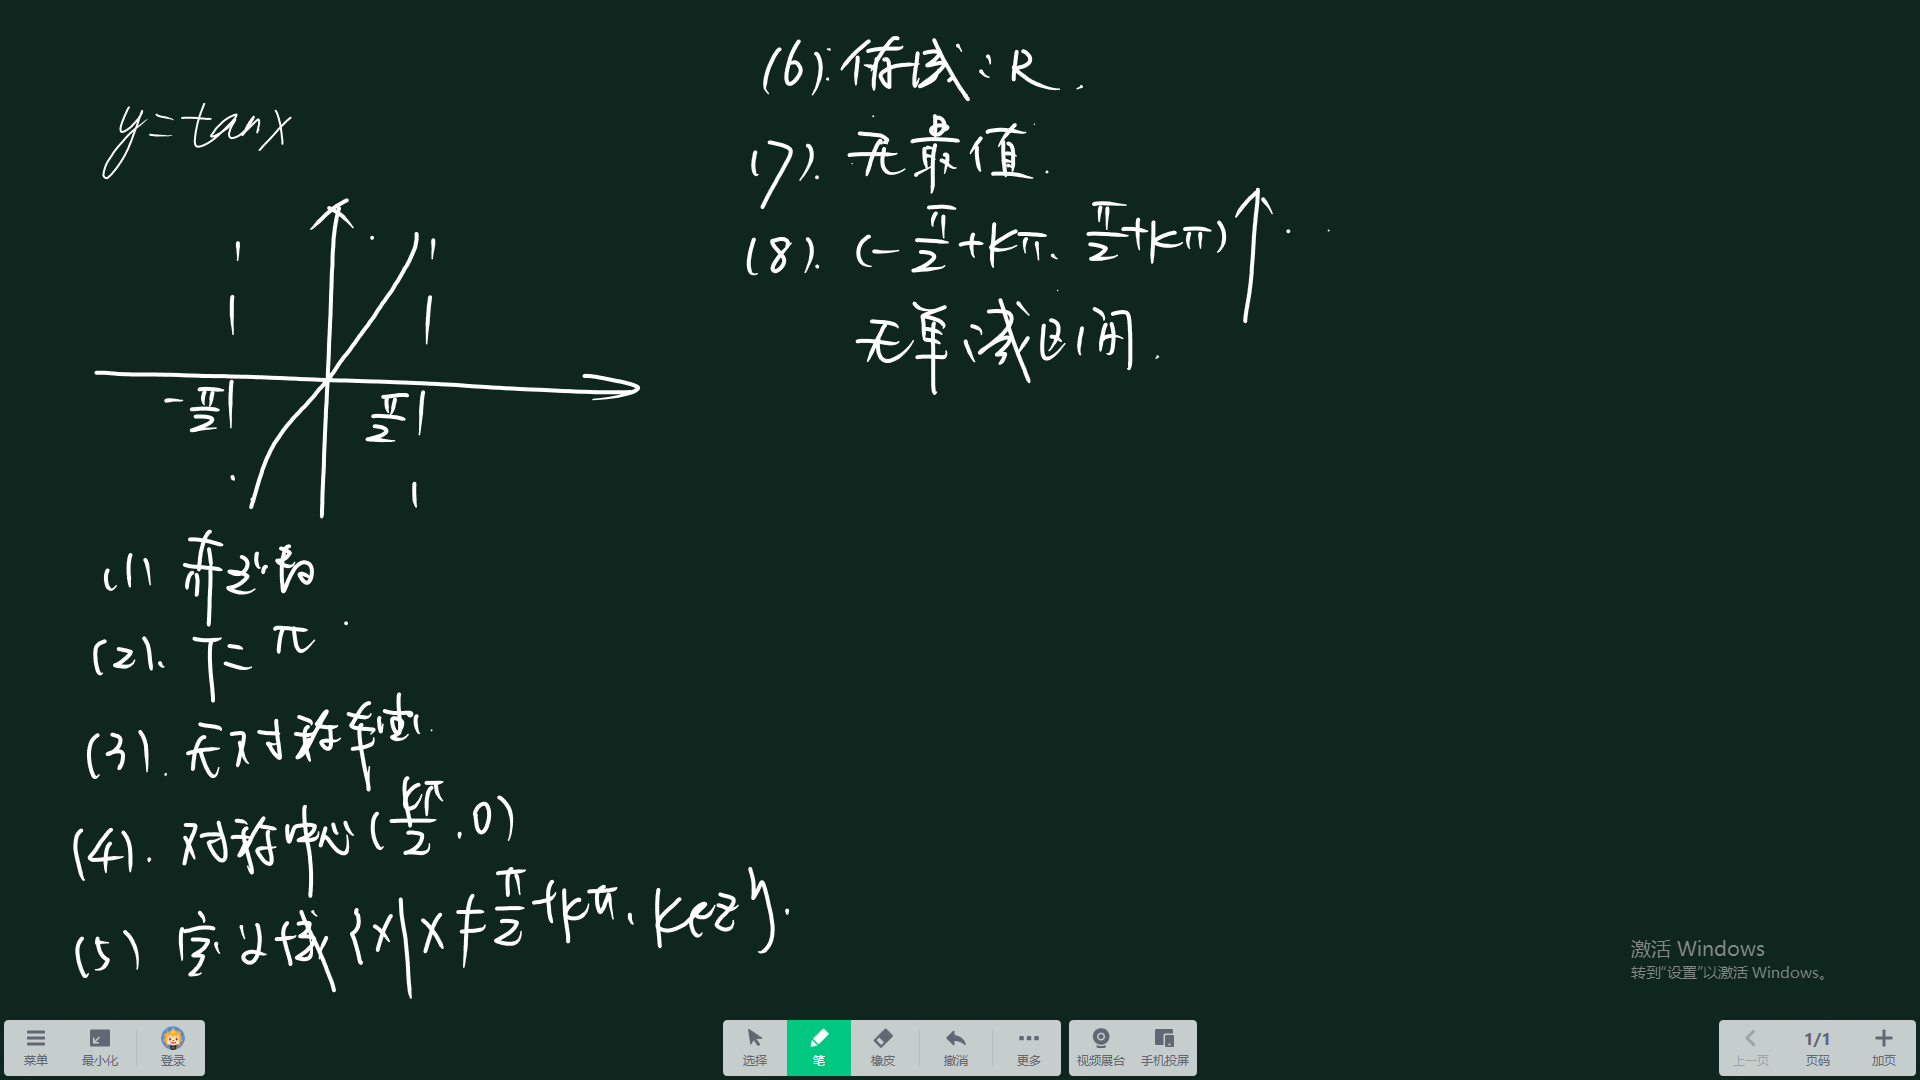 y=tanx
-π/2
π/2
(1) 奇函数
(2). T=π
(3). 无对称轴.
(4). 对称中心(kπ/2,0)
(5) 定义域{x|x≠π/2+kπ, k∈Z}.
(6). 值域:R.
(7). 无最值.
(8). (-π/2+kπ, π/2+kπ)↑.
无单减区间.
激活 Windows
转到“设置”以激活 Windows。
菜单 最小化 登录 选择 笔 橡皮 撤消 更多 视频展台 手机投屏 上一页 1/1 页码 加页